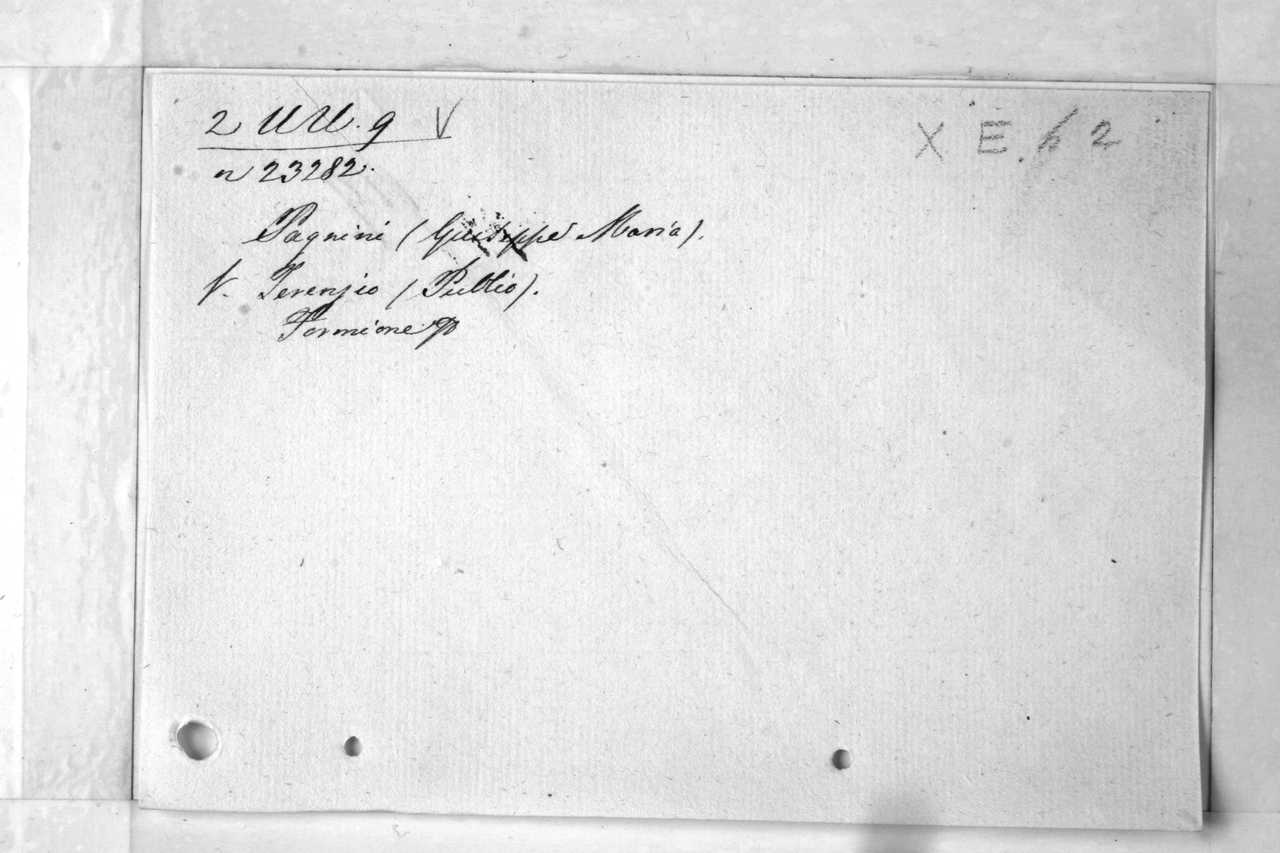 2 UU. 9 V
X E. h 2
n 23282.
Pagnini (Giuseppe Maria).
V. Terenzio (Publio).
Formione